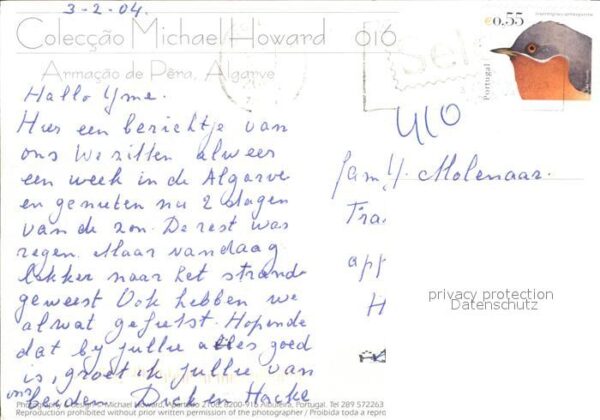 3-2-04.
Colecção Michael Howard 616
Armação de Pêra, Algarve
€0,55
Portugal
Hallo Yme.
Hier een berichtje van
ons We zitten alweer
een week in de Algarve
en genieten nu 2 dagen
van de zon. De rest was
regen. Maar vandaag
lekker naar het strand
geweest Ook hebben we
alwat gefietst. Hopende
dat by jullie alles goed
is, groet ik jullie van
ons beiden. Dick en
410
fam. Y. Molenaar.
Tra.
app
H
privacy protection
Datenschutz
Photography & Michael Howard 8200-916 Albufeira, Portugal. Tel 289 572263
Reproduction prohibited without prior written permission of the photographer / Proibida toda a repro